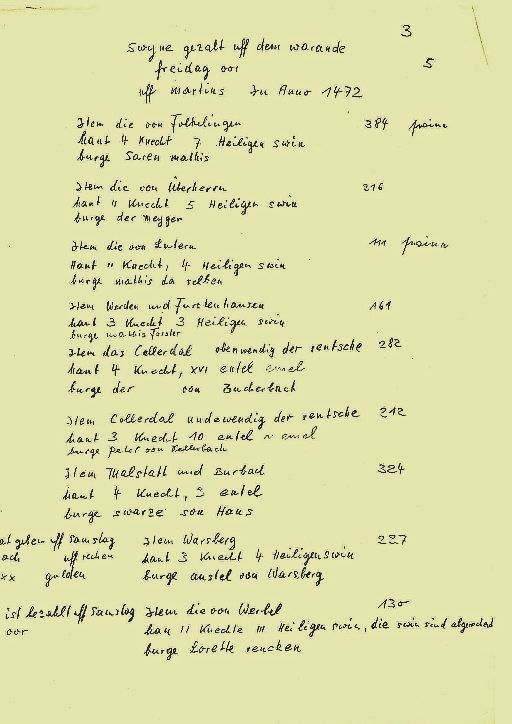 3
Swyne gezalt uff dem warande
freidag vor
5
uff martins In Anno 1472
Item die von Folkelingen 384
hant 4 Knecht 7 Heiligen swin
burge Saren mathis
Item die von Überherrn 216
hant 11 Knecht 5 Heiligen swin
burge der meyger
Item die von Lutern 111
Hant 11 Knecht, 4 Heiligen swin
burge mathis da selben
Item Werden und Furstenhausen 161
hant 3 Knecht 3 Heiligen swin
burge mathis Forster
Item das Collerdal obenwendig der rentsche 282
hant 4 Knecht, XVI entel
burge der von Bucherbach
Item Collerdal undewendig der rentsche 212
hant 3 Knecht 10 entel
burge peter von Kellerbach
Item Malstatt und Burbach 324
hant 4 Knecht, 3 entel
burge swarze son Hans
uff Samstag Item Warsberg 227
uff rechen hant 3 Knecht 4 Heiligen swin
xx gulden burge anstel von Warsberg
ist bezahlt uff Samstag Item die von Werbel 130
vor han 11 Knechte 111 Heiligen swin, die swin sind abgerechnet
burge Lorette rencken